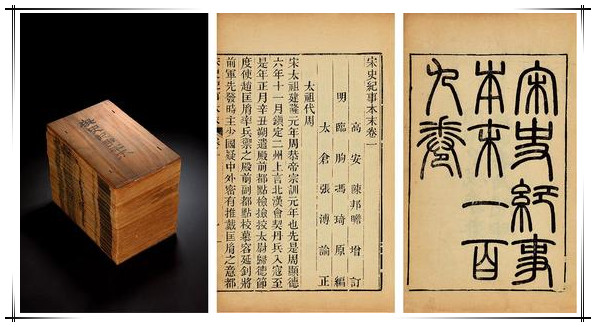 宋史紀事本末卷一
高安陳邦瞻增訂
明臨朐馮琦原編
太倉張溥論正
太祖代周
宋太祖建隆元年周恭帝宗訓元年也先是周顯德
六年十一月鎮定二州上言北漢會契丹兵入寇至
是年正月辛丑朔遣殿前都點檢檢校太尉歸德節
度使趙匡胤率兵禦之殿前副都點校慕容延釗將
前軍先發時主少國疑中外密有推戴匡胤之意都
宋史紀事
本末一百
九卷